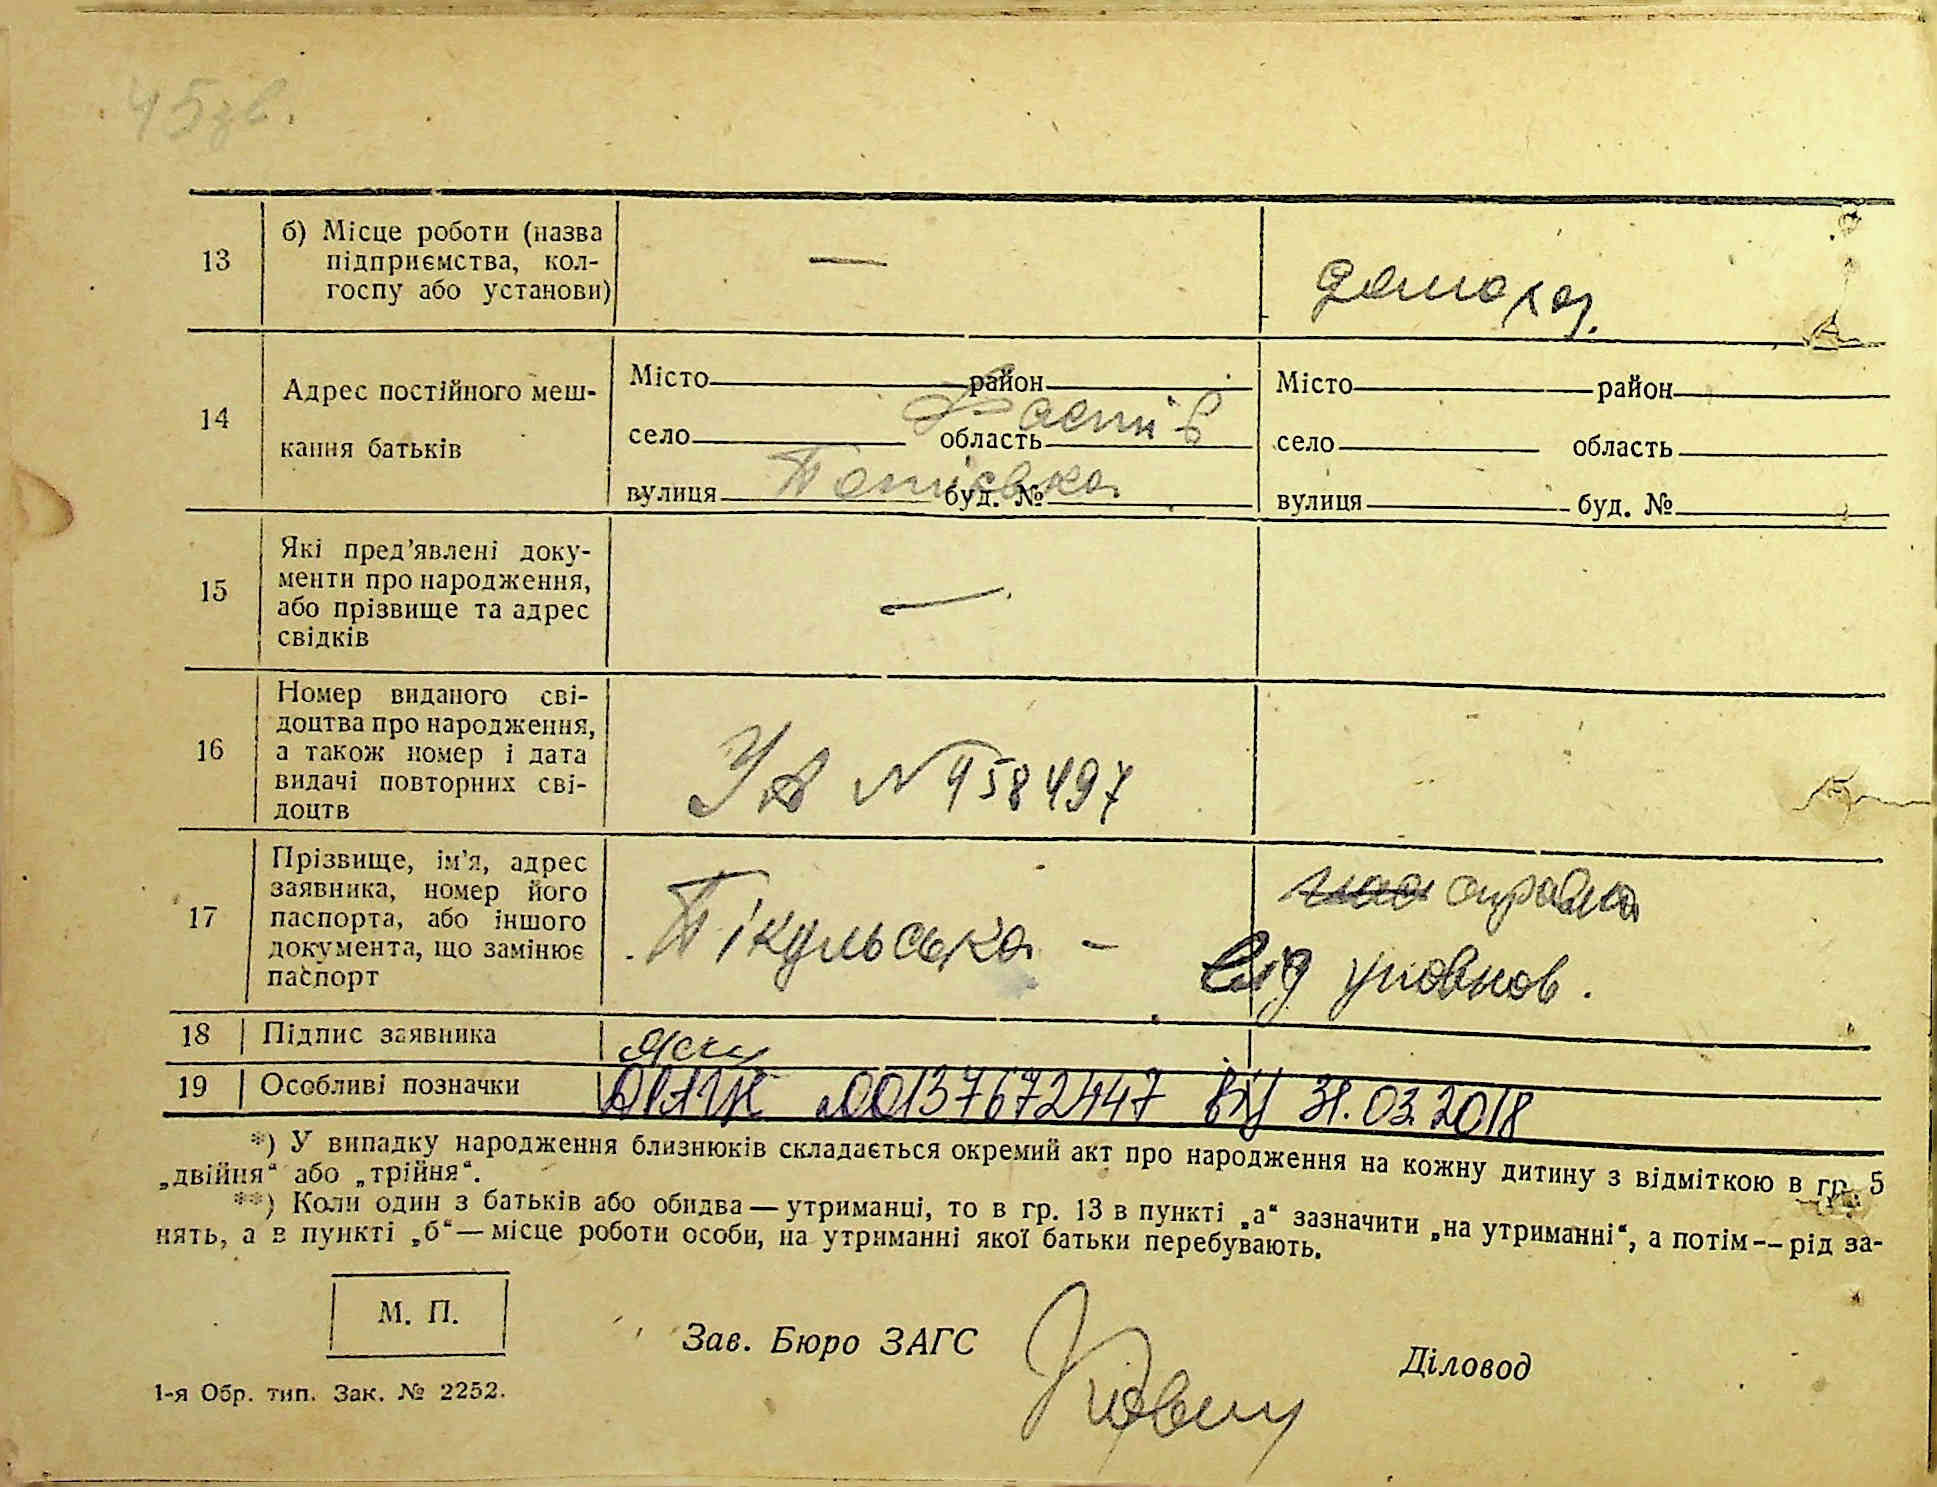 45зв.
13
б) Місце роботи (назва
підприємства, кол-
госпу або установи)
—
домогоз.
14
Адрес постійного меш-
кання батьків
Місто район
село область
Фастів
вулиця буд. №
Місто район
село область
вулиця буд. №
15
Які пред’явлені доку-
менти про народження,
або прізвище та адрес
свідків
—
16
Номер виданого сві-
доцтва про народження,
а також номер і дата
видачі повторних сві-
доцтв
УА № 958497
17
Прізвище, ім’я, адрес
заявника, номер його
паспорта, або іншого
документа, що замінює
паспорт
Пікульська —
від уповнов.
18
Підпис заявника
19
Особливі позначки
ДРАЦС 00137672447 від 31.03.2018
*) У випадку народження близнюків складається окремий акт про народження на кожну дитину з відміткою в гр. 5
„двійня“ або „трійня“.
**) Коли один з батьків або обидва — утриманці, то в гр. 13 в пункті „а“ зазначити „на утриманні“, а потім — рід за-
нять, а в пункті „б“ — місце роботи особи, на утриманні якої батьки перебувають.
М. П.
Зав. Бюро ЗАГС
Діловод
1-я Обр. тип. Зак. № 2252.